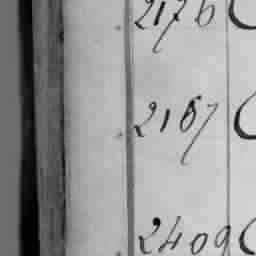 2176
2167
2409